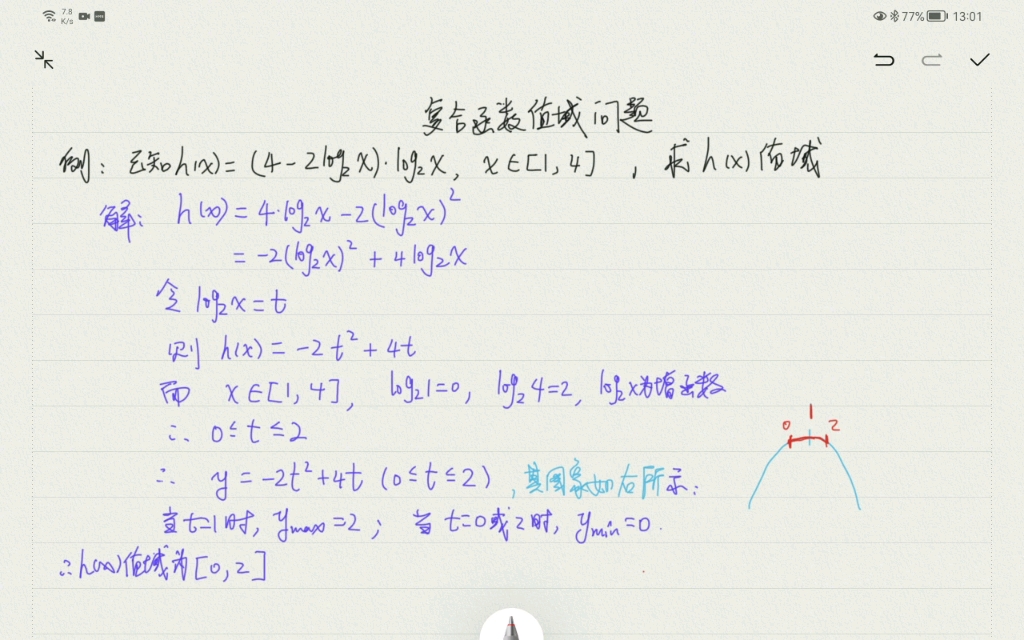 7.8 K/s
77% 13:01
复合函数值域问题
例：已知h(x)=(4-2log₂x)·log₂x, x∈[1,4]，求h(x)值域
解：h(x)=4·log₂x-2(log₂x)²
=-2(log₂x)²+4log₂x
令log₂x=t
则h(x)=-2t²+4t
而x∈[1,4], log₂1=0, log₂4=2, log₂x为增函数
∴0≤t≤2
∴y=-2t²+4t (0≤t≤2)，其图象如右所示：
当t=1时, ymax=2；当t=0或2时, ymin=0.
∴h(x)值域为[0,2]
1
0 2